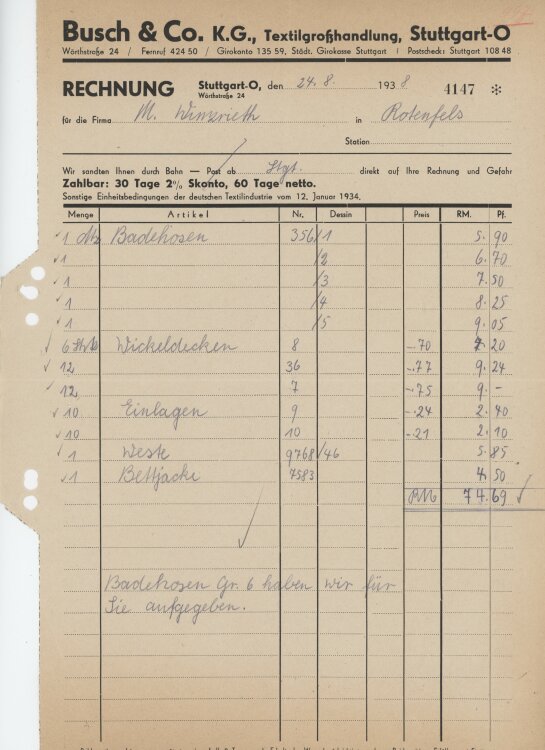 Busch & Co. K.G., Textilgroßhandlung, Stuttgart-O
Wörthstraße 24 / Fernruf 424 50 / Girokonto 135 59, Städt. Girokasse Stuttgart / Postscheck: Stuttgart 108 48
RECHNUNG Stuttgart-O, den 24. 8. 1938 4147 *
Wörthstraße 24
für die Firma M. in Rotenfels
Station
Wir sandten Ihnen durch Bahn — Post ab Stgt. direkt auf Ihre Rechnung und Gefahr
Zahlbar: 30 Tage 2% Skonto, 60 Tage netto.
Sonstige Einheitsbedingungen der deutschen Textilindustrie vom 12. Januar 1934.
Menge Artikel Nr. Dessin Preis RM. Pf.
1 Badehosen 356/1 5. 90
1 /2 6. 70
1 /3 7. 50
1 /4 8. 25
1 /5 9. 05
6 Stck Wickeldecken 8 -.70 4. 20
12 36 -.77 9. 24
12 7 -.75 9. -
10 Einlagen 9 -.24 2. 40
10 10 -.21 2. 10
1 Weste 9768/46 5. 85
1 Bettjacke 7583 4. 50
RM 74.69
Badehosen Gr. 6 haben wir für
Sie aufgegeben.